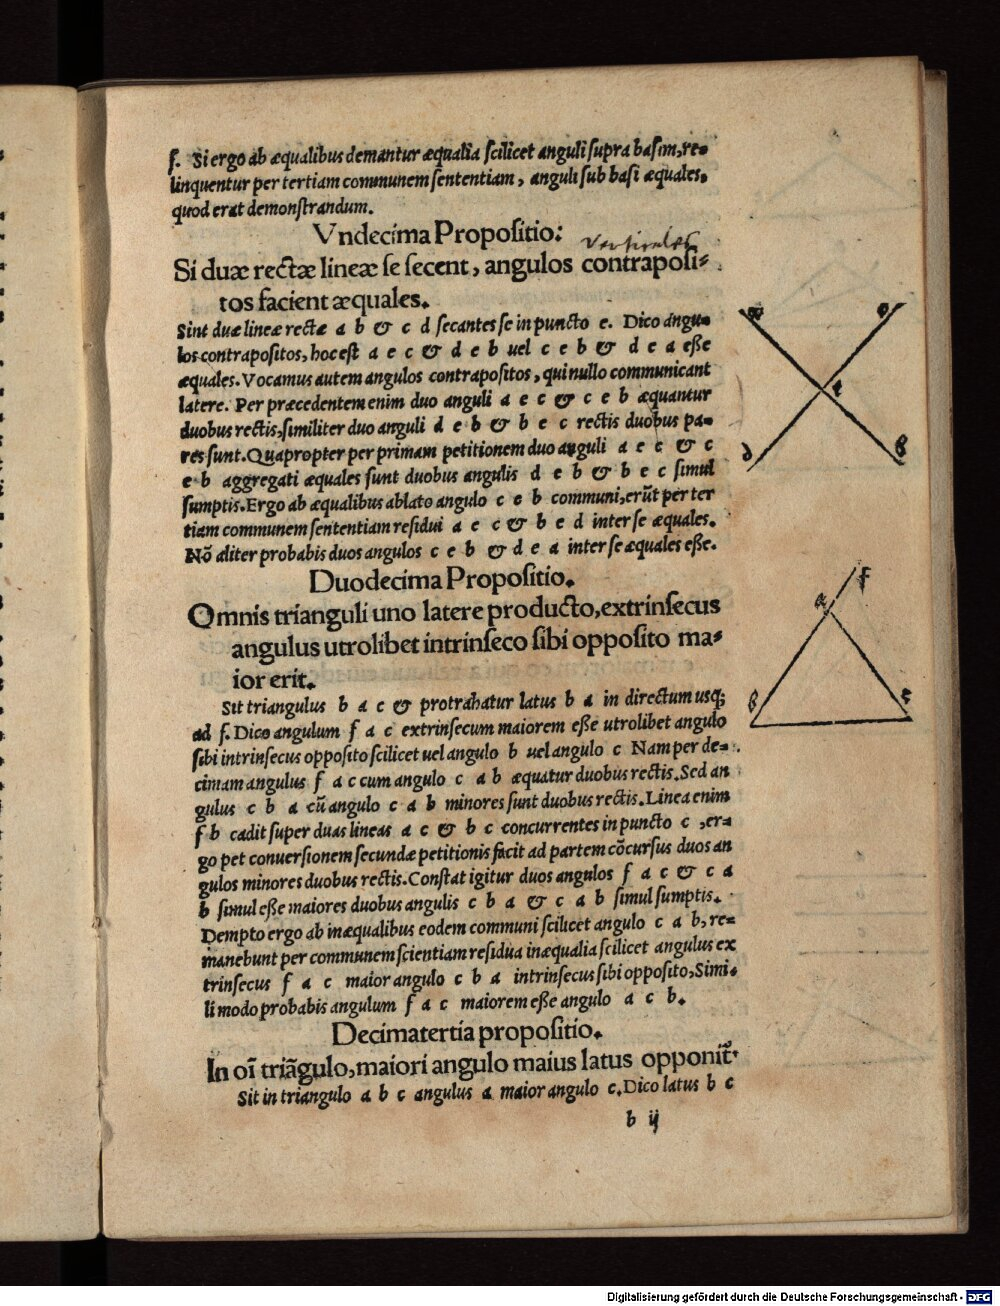 f. Si ergo ab æqualibus demantur æqualia scilicet anguli supra basim, re-
linquentur per tertiam communem sententiam, anguli sub basi æquales.
quod erat demonstrandum.
Vndecima Propositio:
verticales
Si duæ rectæ lineæ se secent, angulos contraposi-
tos facient æquales.
Sint duæ lineæ rectæ a b & c d secantes se in puncto e. Dico angu-
los contrapositos, hoc est a e c & d e b uel c e b & d e a esse
æquales. Vocamus autem angulos contrapositos, qui nullo communicant
latere. Per præcedentem enim duo anguli a e c & c e b æquantur
duobus rectis, similiter duo anguli d e b & b e c rectis duobus pa-
res sunt. Quapropter per primam petitionem duo anguli a e c & c
e b aggregati æquales sunt duobus angulis d e b & b e c simul
sumptis. Ergo ab æqualibus ablato angulo c e b communi, erūt per ter
tiam communem sententiam residui a e c & b e d inter se æquales.
Nō aliter probabis duos angulos c e b & d e a inter se æquales esse.
Duodecima Propositio.
Omnis trianguli uno latere producto, extrinsecus
angulus utrolibet intrinseco sibi opposito ma-
ior erit.
Sit triangulus b a c & protrahatur latus b a in directum usq;
ad f. Dico angulum f a c extrinsecum maiorem esse utrolibet angulo
sibi intrinsecus opposito scilicet uel angulo b uel angulo c Nam per de-
cimam angulus f a c cum angulo c a b æquatur duobus rectis. Sed an
gulus c b a cū angulo c a b minores sunt duobus rectis. Linea enim
f b cadit super duas lineas a c & b c concurrentes in puncto c , er-
go pet conuersionem secundæ petitionis facit ad partem cōcursus duos an
gulos minores duobus rectis. Constat igitur duos angulos f a c & c a
b simul esse maiores duobus angulis c b a & c a b simul sumptis.
Dempto ergo ab inæqualibus eodem communi scilicet angulo c a b, re-
manebunt per communem scientiam residua inæqualia scilicet angulus ex
trinsecus f a c maior angulo c b a intrinsecus sibi opposito, Simi-
li modo probabis angulum f a c maiorem esse angulo a c b.
Decimatertia propositio.
In oī triāgulo, maiori angulo maius latus opponit᷑
Sit in triangulo a b c angulus a maior angulo c. Dico latus b c
b ij
e
d
B
f
a
B
c
Digitalisierung gefördert durch die Deutsche Forschungsgemeinschaft - DFG